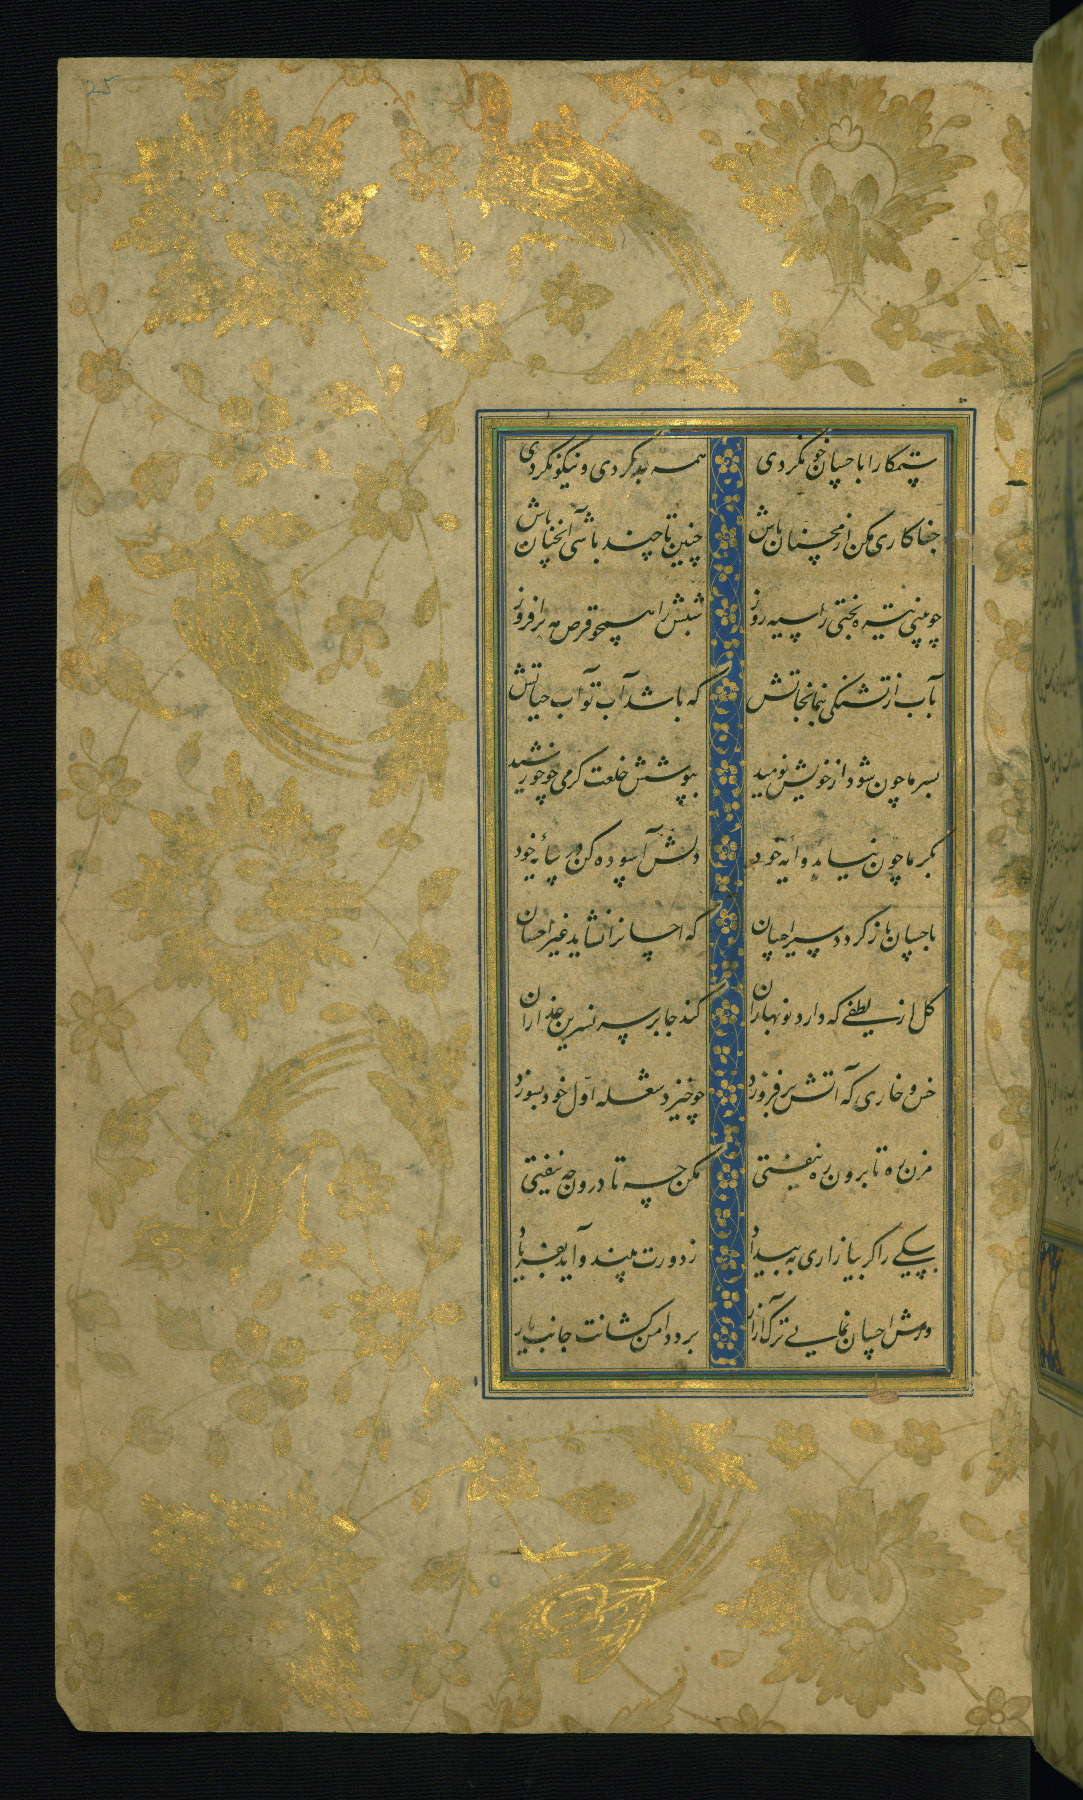 25
ستمکارا باحسان خو نکردی همه بد کردی و نیکو نکردی
جفاکاری مکن از محسنان باش چنین تا چند باشی آنچنان باش
چو بینی تیره بختی را سیه روز شبش را همچو قرص مه برافروز
بآب از تشنگی بنما نجاتش که باشد آب تو آب حیاتش
بسرما چون شود از خویش نومید بپوشش خلعت گرمی چو خورشید
بگرما چون نیابد وایه خود دلش آسوده کن در سایه خود
باحسان باز گردد سیر احسان که احسانرا نشاید غیر احسان
گل از لطفی که دارد نوبهاران کند جا بر سر نسرین عذاران
خس و خاری که آتش برفروزد چو خیزد شعله اول خود بسوزد
مزن ره تا برون ره نیفتی مکن چه تا درون چه نیفتی
سگی را گر بیازاری به بیداد ز دورت بیند و آید بفریاد
ورش احسان نمایی ترک آزار برد دامن کشانت جانب یار